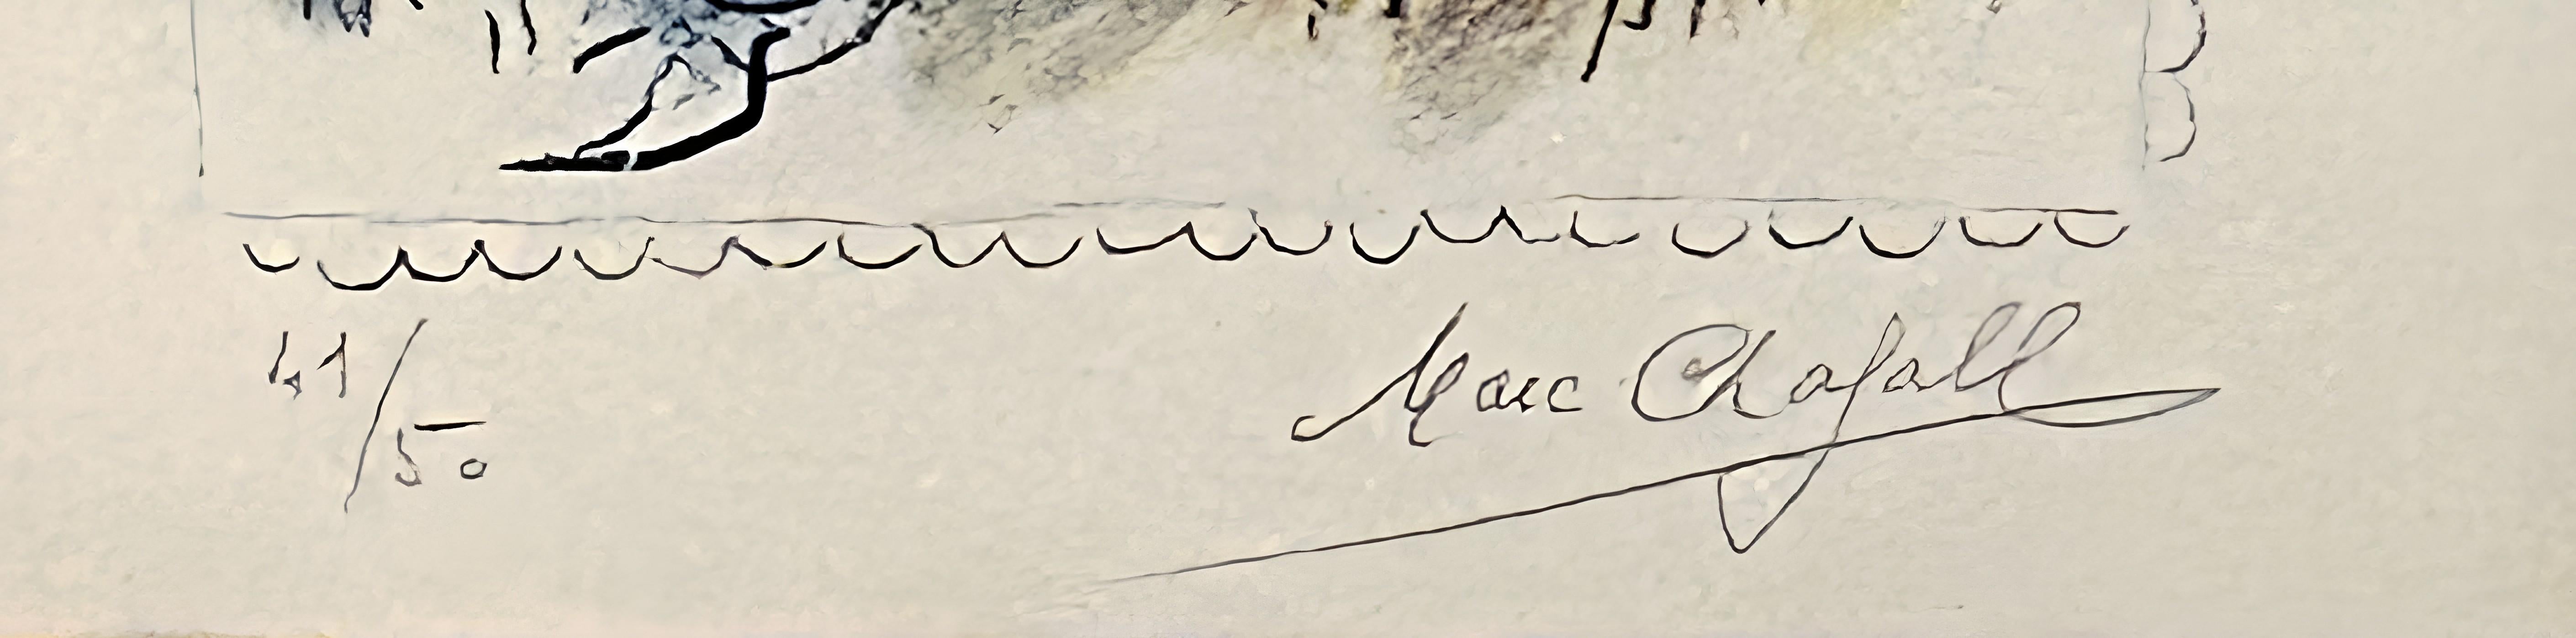 41/50
Marc Chagall